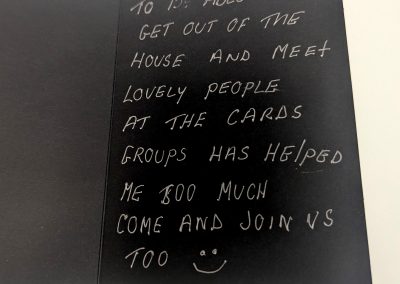 TO
GET OUT OF THE
HOUSE AND MEEt
LOVELY PEOPLE
AT THE CARDS
GROUPS HAS HElPED
ME SOO MUCH
COME AND JOIN US
TOO